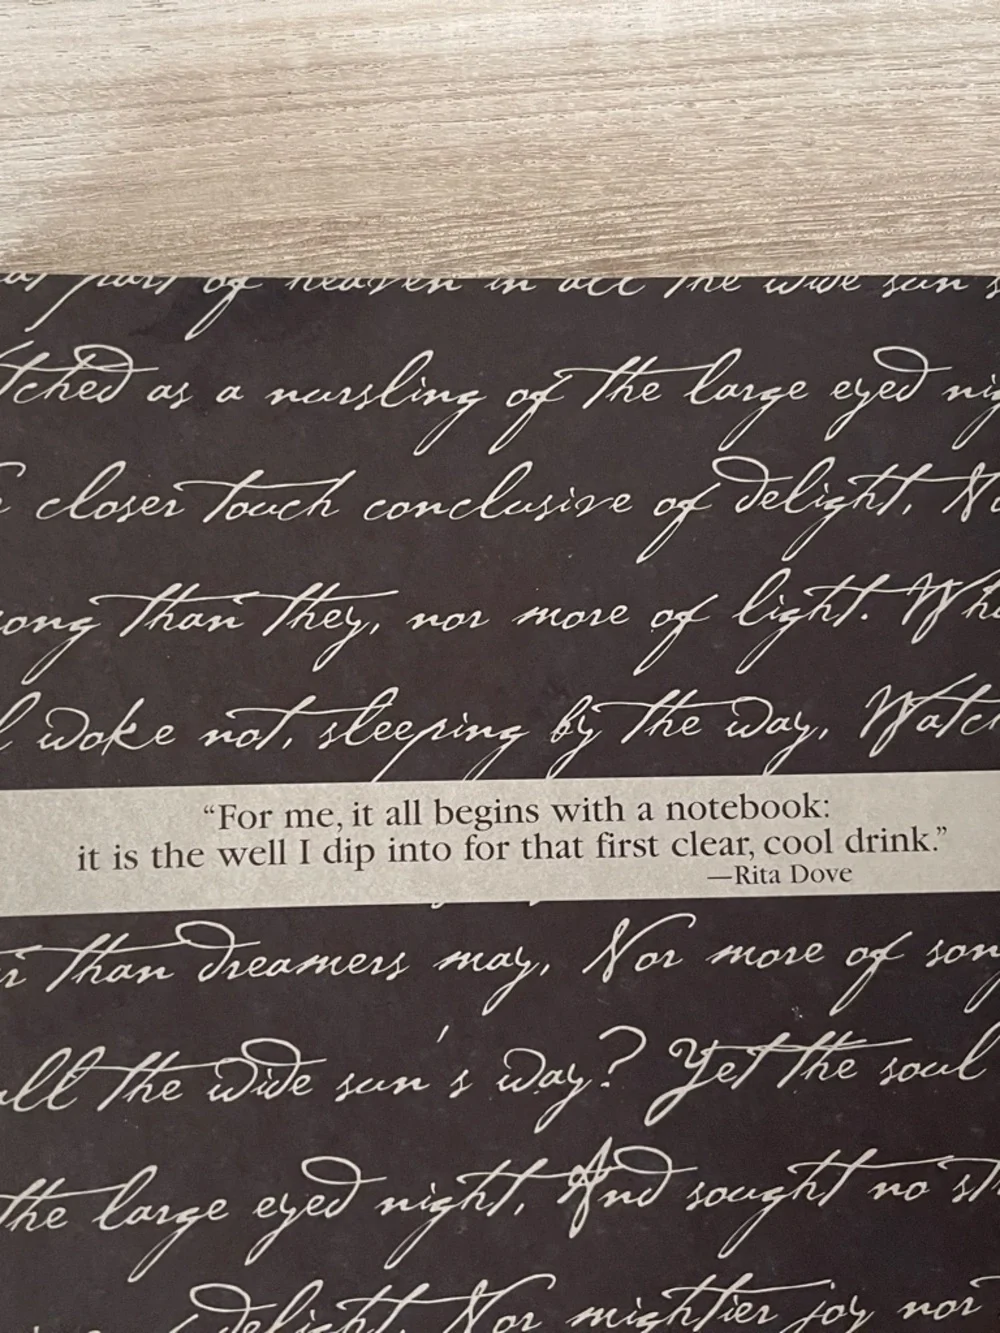 part of heaven in all the wide sun
as a nursling of the large eyed
closer touch conclusive of delight,
than they, nor more of light.
woke not, sleeping by the way,
“For me, it all begins with a notebook:
it is the well I dip into for that first clear, cool drink.”
—Rita Dove
than dreamers may, Nor more of
all the wide sun's way? Yet the soul
the large eyed night, And sought no
delight, Nor mightier joy nor